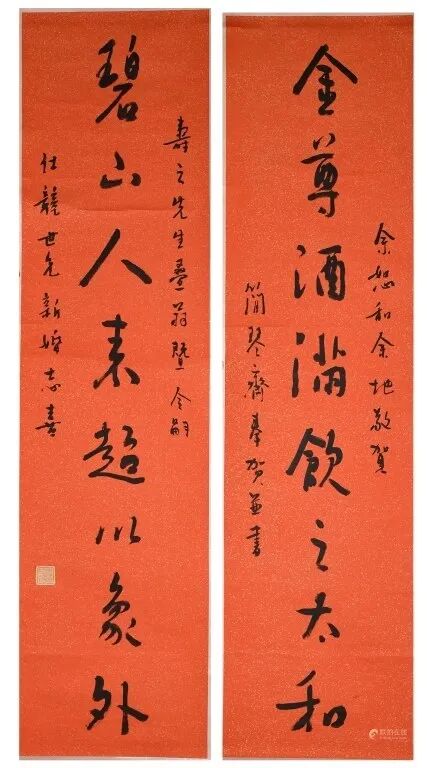 余恕和余地敬賀
金尊酒滿飲之太和
簡琴齋奉賀並書
壽之先生翁暨 令嗣
碧山人來超以象外
仕龍世兄新婚志喜